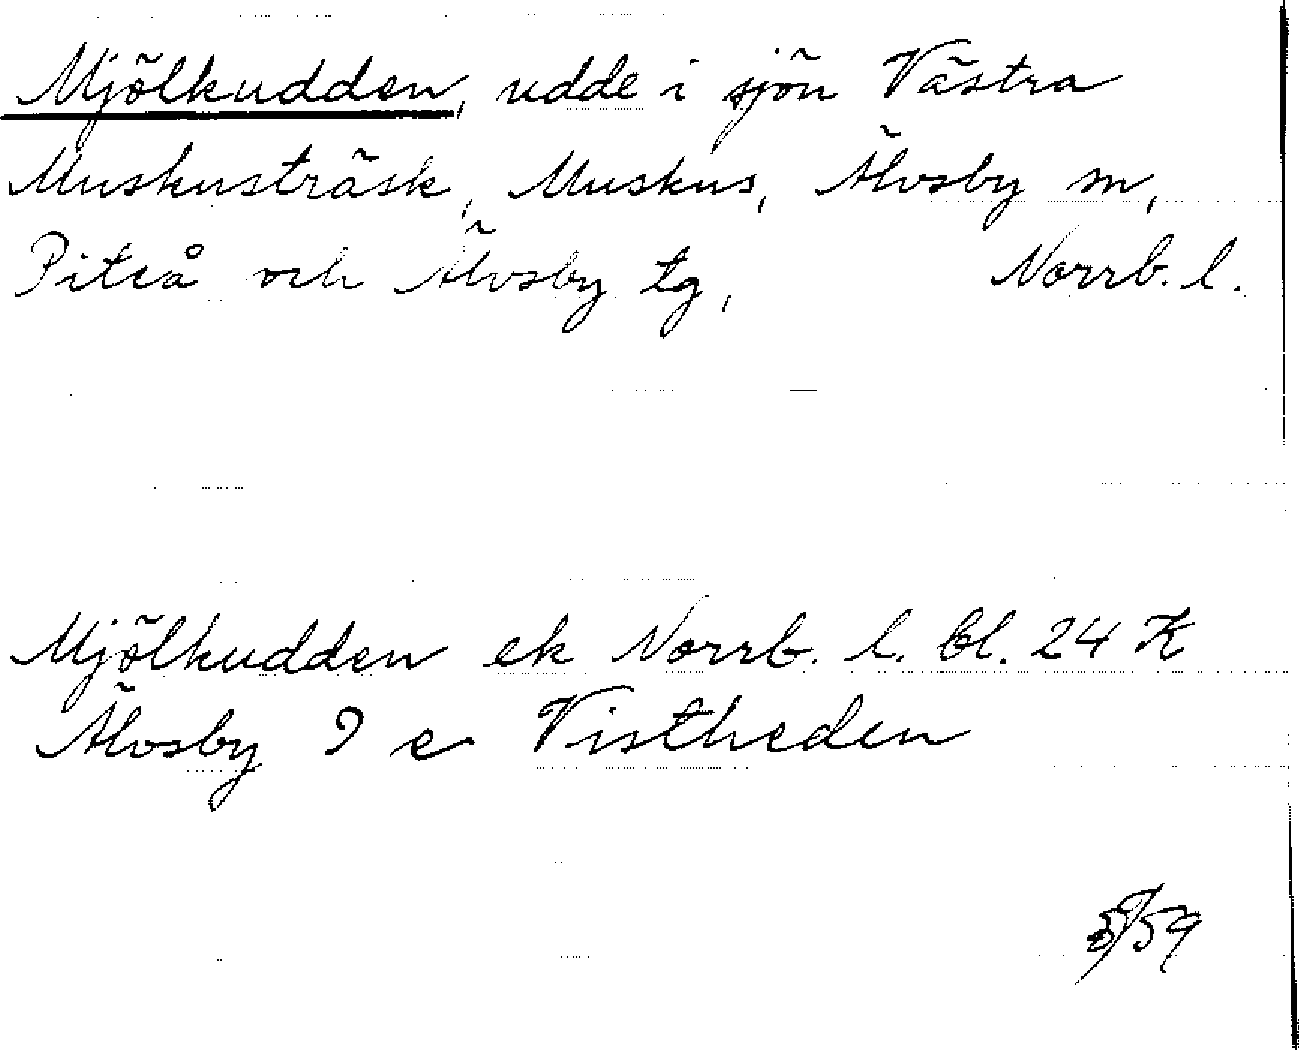 Mjölkudden, udde i sjön Västra
Muskusträsk, Muskus, Älvsby sn,
Piteå och Älvsby tg, Norrb. l.
Mjölkudden ek Norrb. l. bl. 24 K
Älvsby 9 e Vistheden
59